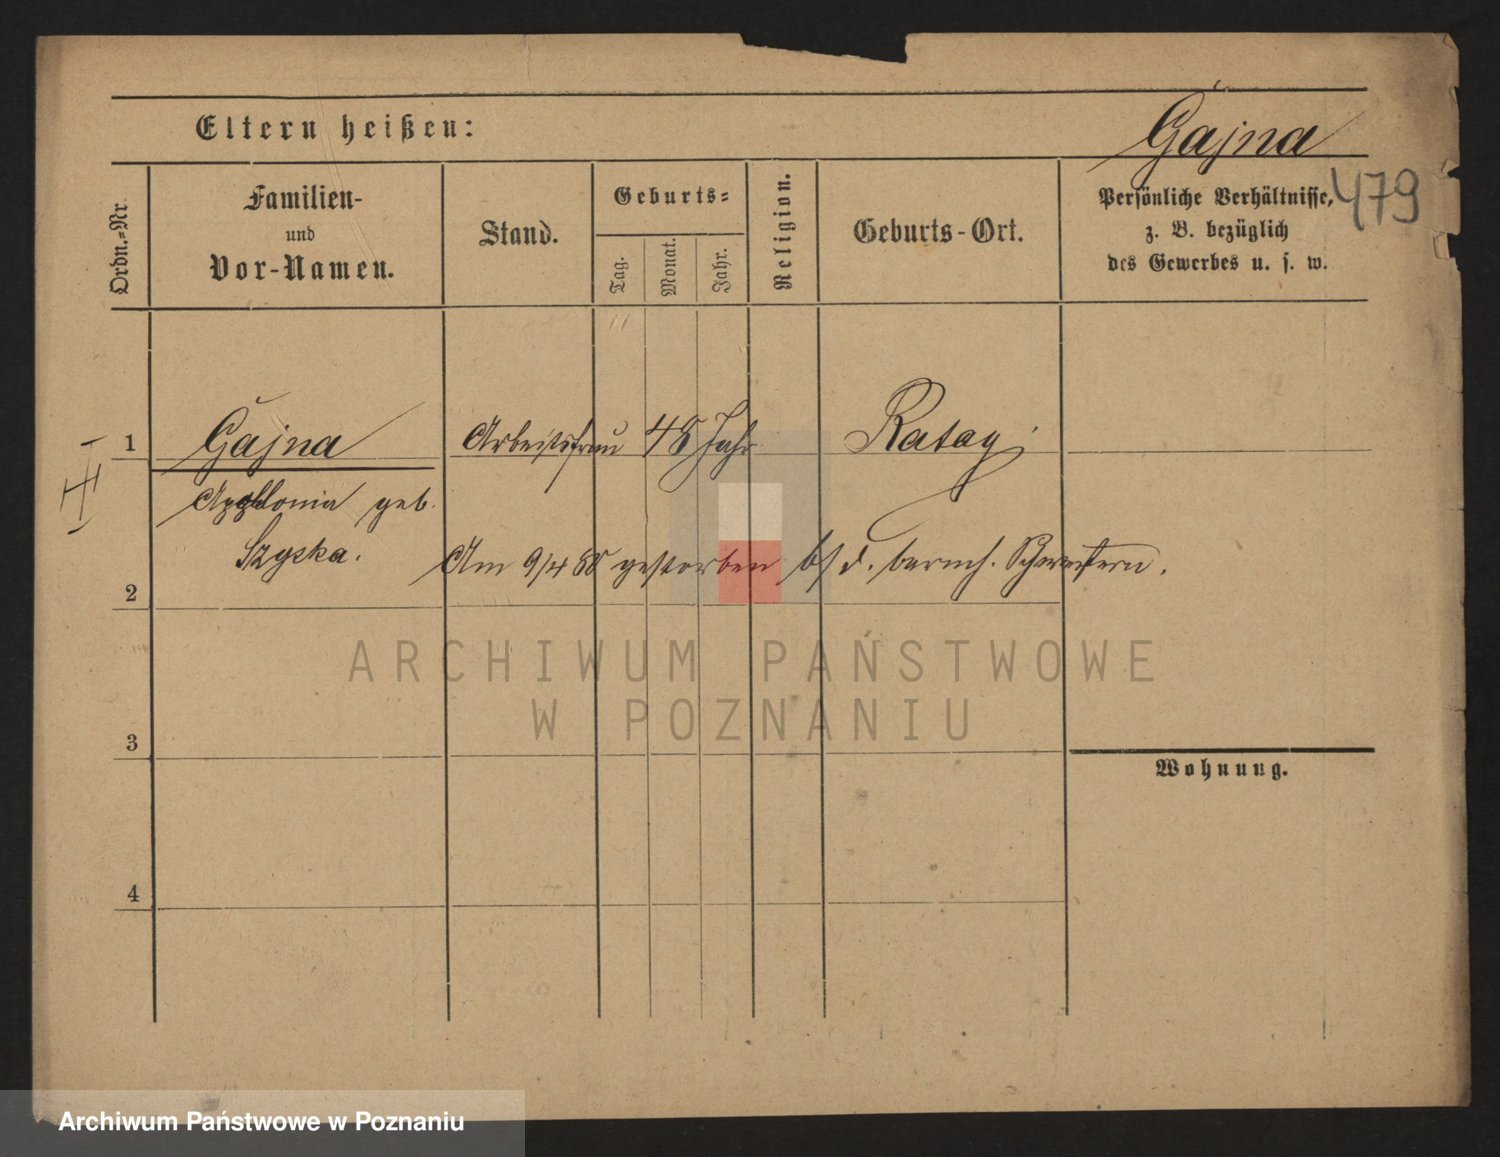 Gajna
Eltern heißen:
479
Ordn.-Nr.
Familien-
und
Vor-Namen.
Stand.
Geburts-
Tag.
Monat.
Jahr.
Religion.
Geburts-Ort.
Persönliche Verhältnisse,
z. B. bezüglich
des Gewerbes u. s. w.
1
Gajna
Arbeitsfrau 48 Jahr
Ratay
Apollonia geb.
Szyska.
Am 9/4 88 gestorben b/ d. barmh. Schwestern.
2
ARCHIWUM PAŃSTWOWE
W POZNANIU
3
Wohnung.
4
Archiwum Państwowe w Poznaniu